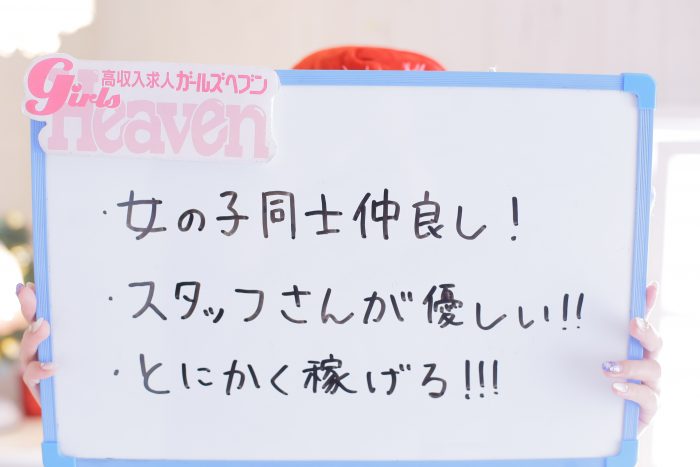 高収入求人ガールズヘブン
Girls
Heaven
・女の子同士仲良し!
・スタッフさんが優しい!!
・とにかく稼げる!!!